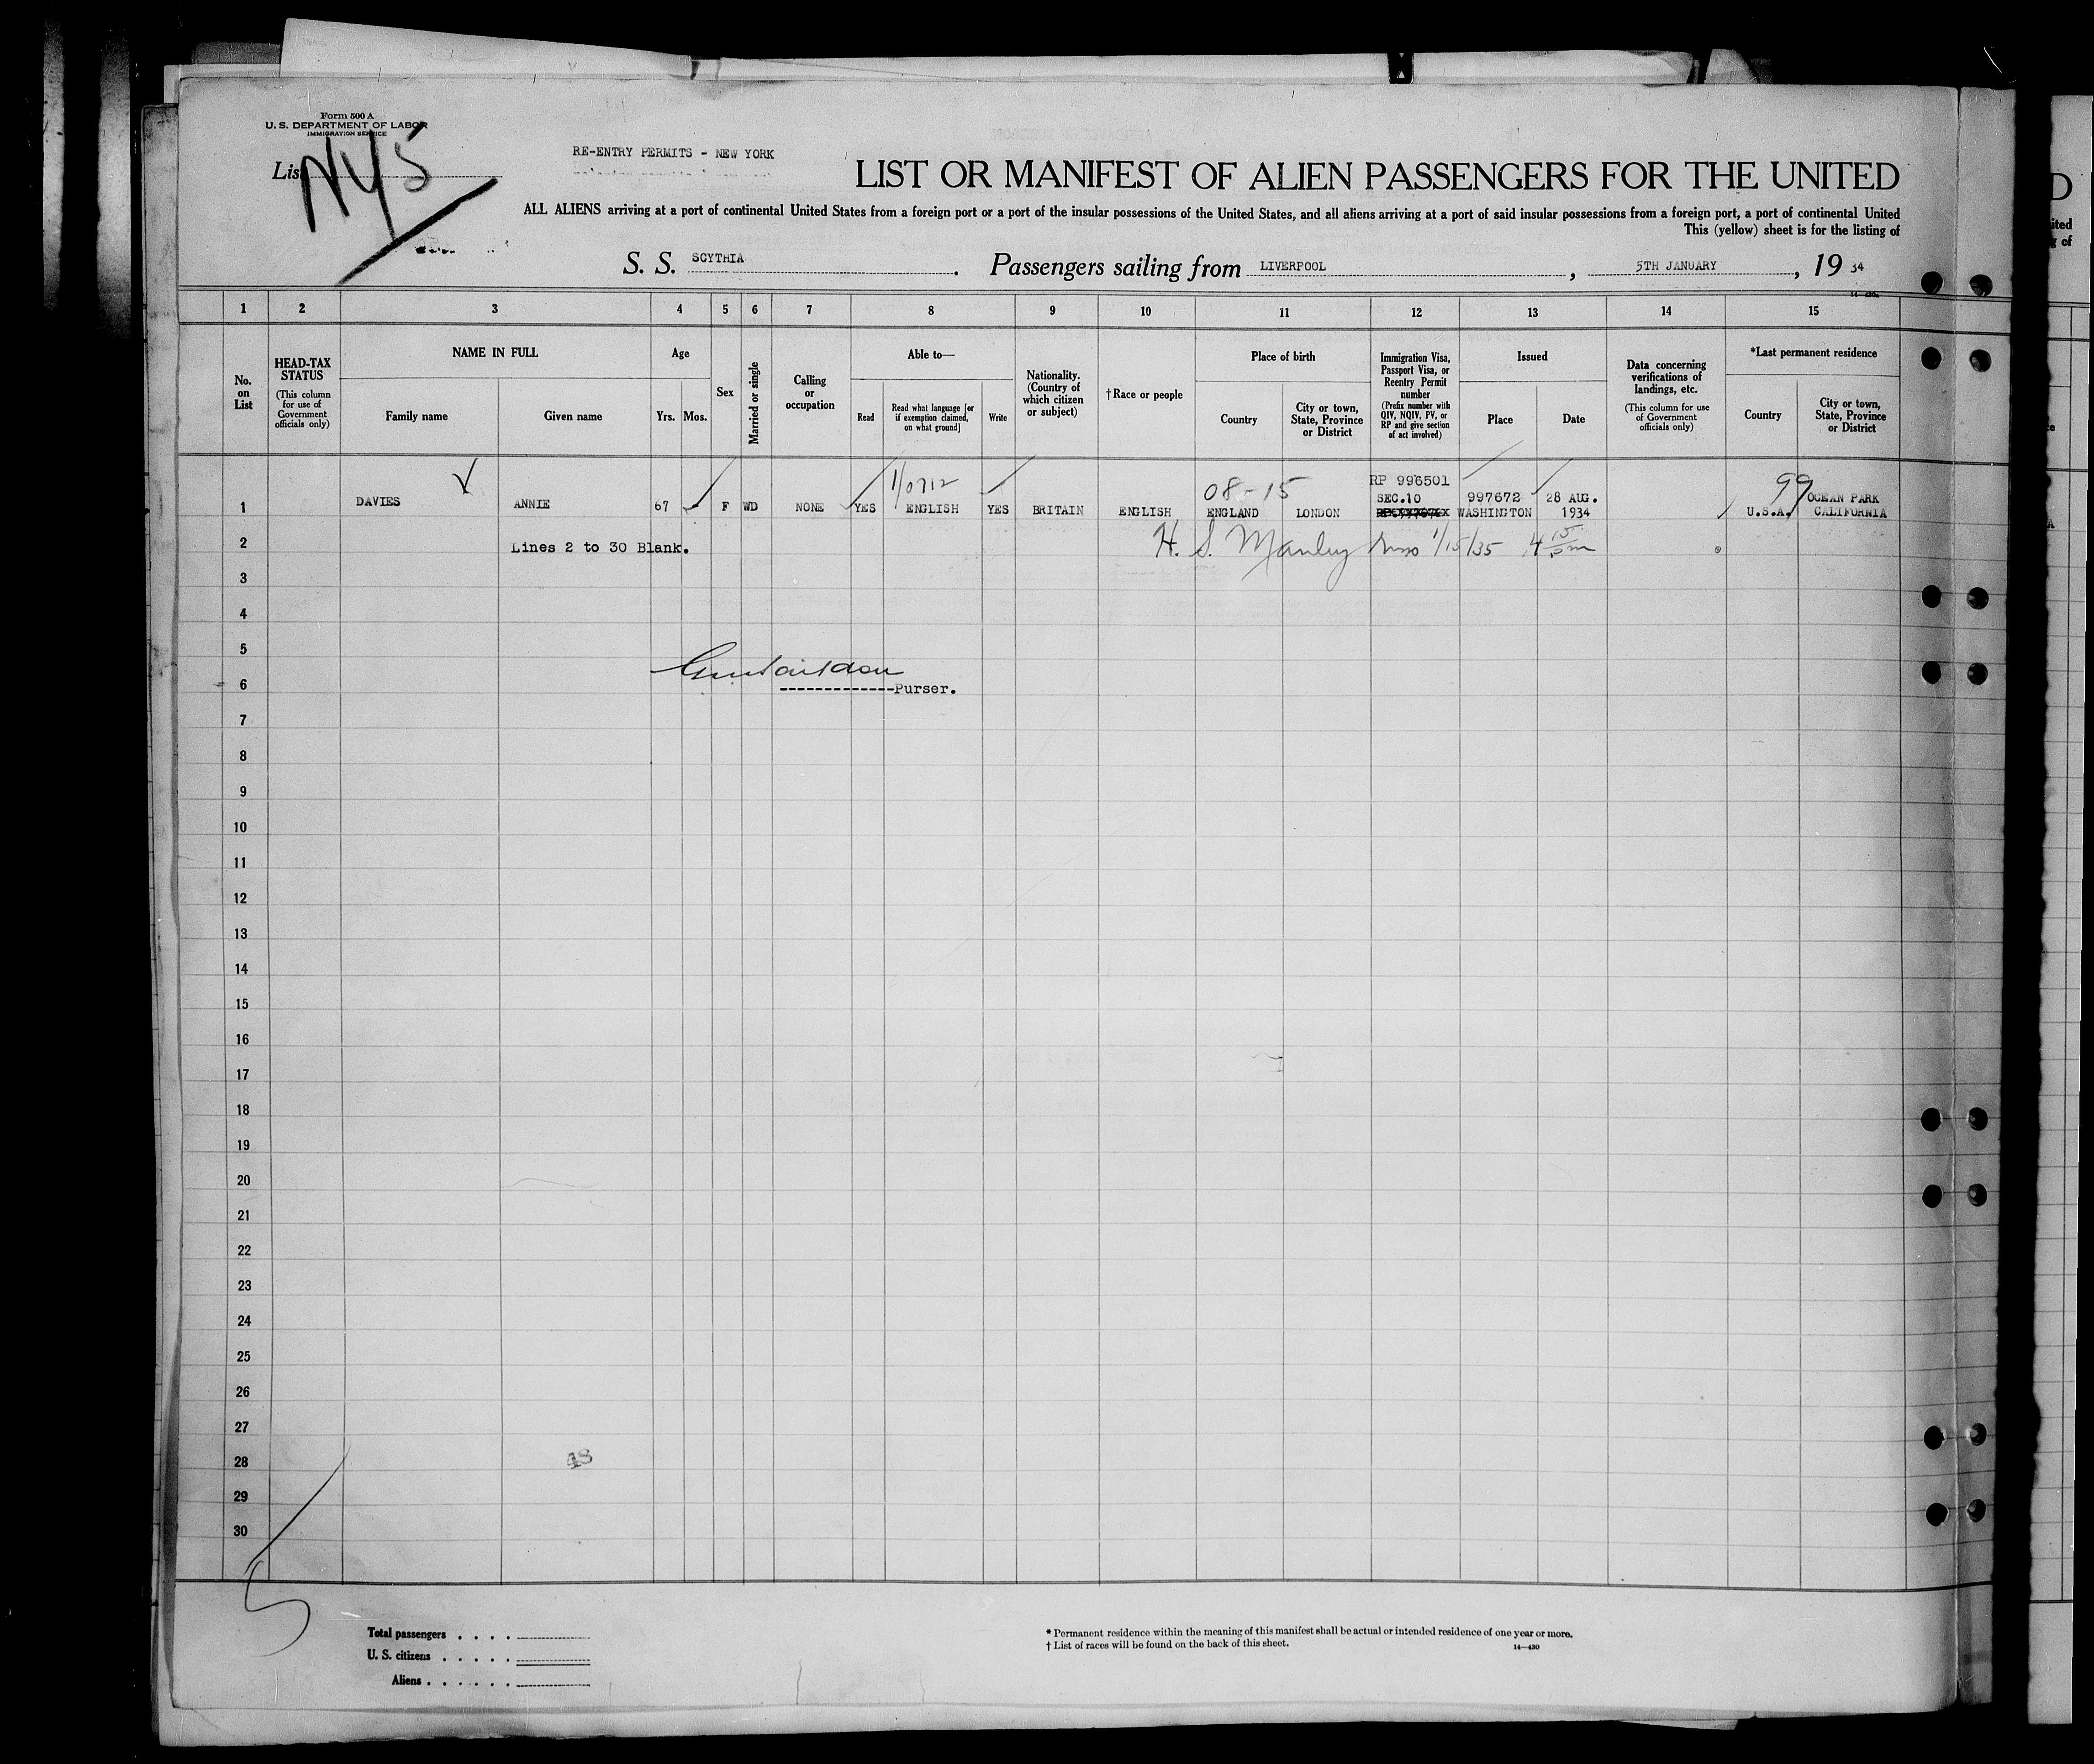 Form 500 A
U. S. DEPARTMENT OF LABOR
IMMIGRATION SERVICE
List NY5
RE-ENTRY PERMITS - NEW YORK
LIST OR MANIFEST OF ALIEN PASSENGERS FOR THE UNITED
ALL ALIENS arriving at a port of continental United States from a foreign port or a port of the insular possessions of the United States, and all aliens arriving at a port of said insular possessions from a foreign port, a port of continental United
This (yellow) sheet is for the listing of
S. S. SCYTHIA. Passengers sailing from LIVERPOOL, 5TH JANUARY, 19 34
1 2 3 4 5 6 7 8 9 10 11 12 13 14 15
No. on List
HEAD-TAX STATUS
(This column for use of Government officials only)
NAME IN FULL
Family name
Given name
Age
Yrs. Mos.
Sex
Married or single
Calling or occupation
Able to—
Read
Read what language [or if exemption claimed, on what ground]
Write
Nationality. (Country of which citizen or subject)
†Race or people
Place of birth
Country
City or town, State, Province or District
Immigration Visa, Passport Visa, or Reentry Permit number
(Prefix number with QIV, NQIV, PV, or RP and give section of act involved)
Issued
Place
Date
Data concerning verifications of landings, etc.
(This column for use of Government officials only)
*Last permanent residence
Country
City or town, State, Province or District
1/0712 08-15 RP 996501 99
1 DAVIES ANNIE 67 F WD NONE YES ENGLISH YES BRITAIN ENGLISH ENGLAND LONDON SEC.10 997672 WASHINGTON 28 AUG. 1934 U.S.A. OCEAN PARK CALIFORNIA
2 Lines 2 to 30 Blank. H. S. Manley 1/15/35 4 15 pm
3
4
5
6 Purser.
7
8
9
10
11
12
13
14
15
16
17
18
19
20
21
22
23
24
25
26
27
28 48
29
30
5
Total passengers
U. S. citizens
Aliens
* Permanent residence within the meaning of this manifest shall be actual or intended residence of one year or more.
† List of races will be found on the back of this sheet.
14—430